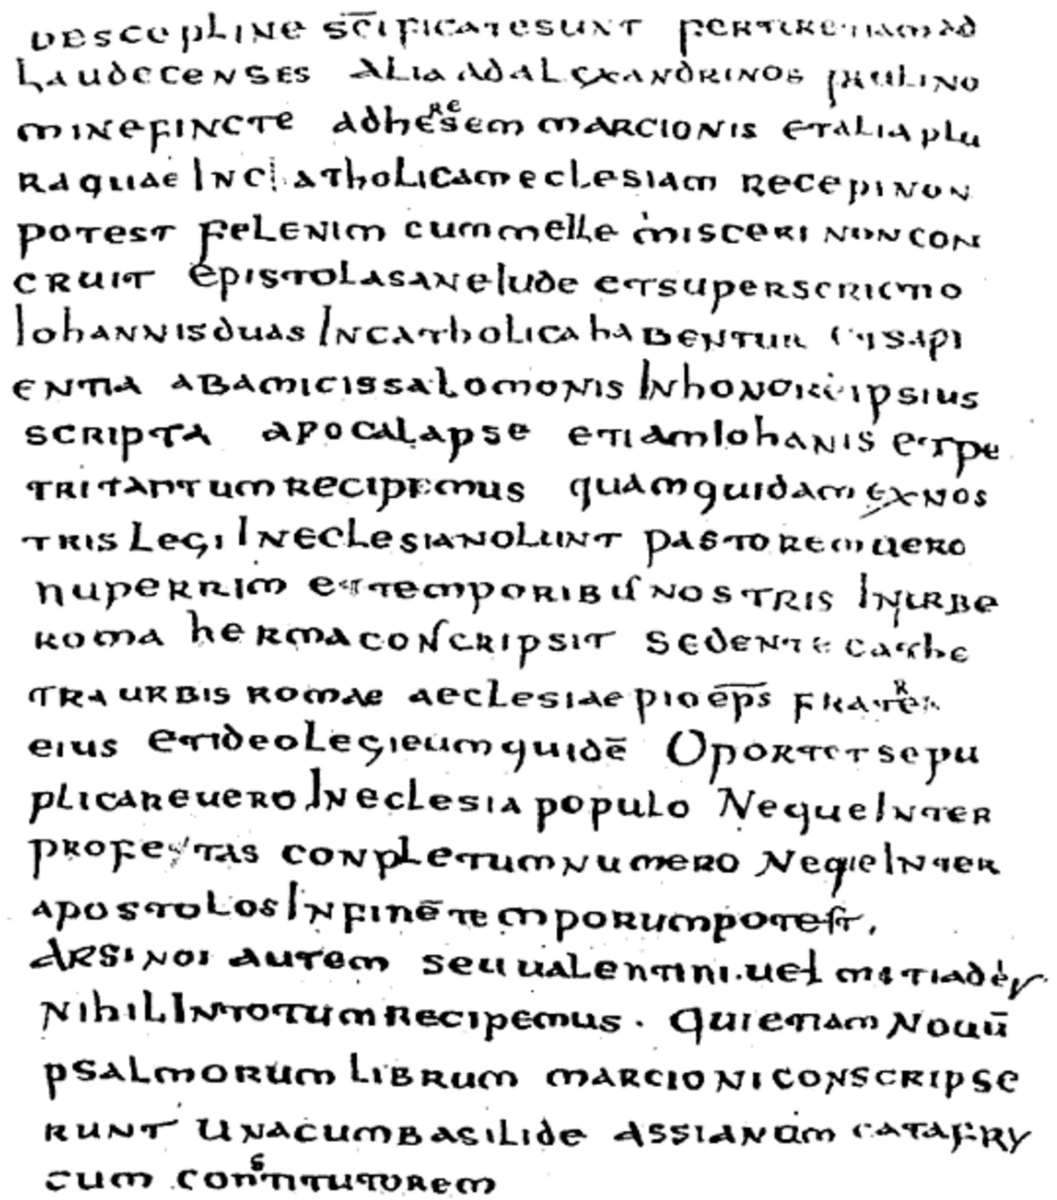 descepline sc̅ificate sunt fertur etiam ad
laudecenses alia ad alexandrinos pauli no
mine fincte ad heresem marcionis et alia plu
ra quae in catholicam eclesiam recepi non
potest fel enim cum melle misceri non con
cruit epistola sane iude et superscrictio
iohannis duas in catholica habentur et sapi
entia ab amicis salomonis in honore ipsius
scripta apocalapse etiam iohanis et pe
tri tantum recipemus quam quidam ex nos
tris legi in eclesia nolunt pastorem uero
nuperrim et temporibus nostris in urbe
roma herma conscripsit sedente cathe
tra urbis romae aeclesiae pio ep̅s frater
eius et ideo legi eum quidē Oportet se pu
plicare uero in eclesia populo Neque inter
profetas conpletum numero Neqie inter
apostolos in finē temporum potest.
Arsinoi autem seu ualentini. uel mitiadeis
nihil in totum recipemus. Qui etiam nouū
psalmorum librum marcioni conscripse
runt una cum basilide assianum catafry
cum constitutorem